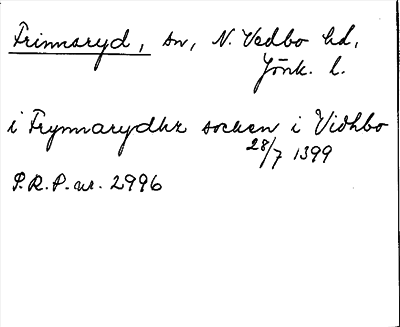 Frinnaryd, sn, N. Vedbo hd,
Jönk. l.
i Frynnarydhz socken i Vidhbo
28/7 1399
P.R.P. nr. 2996